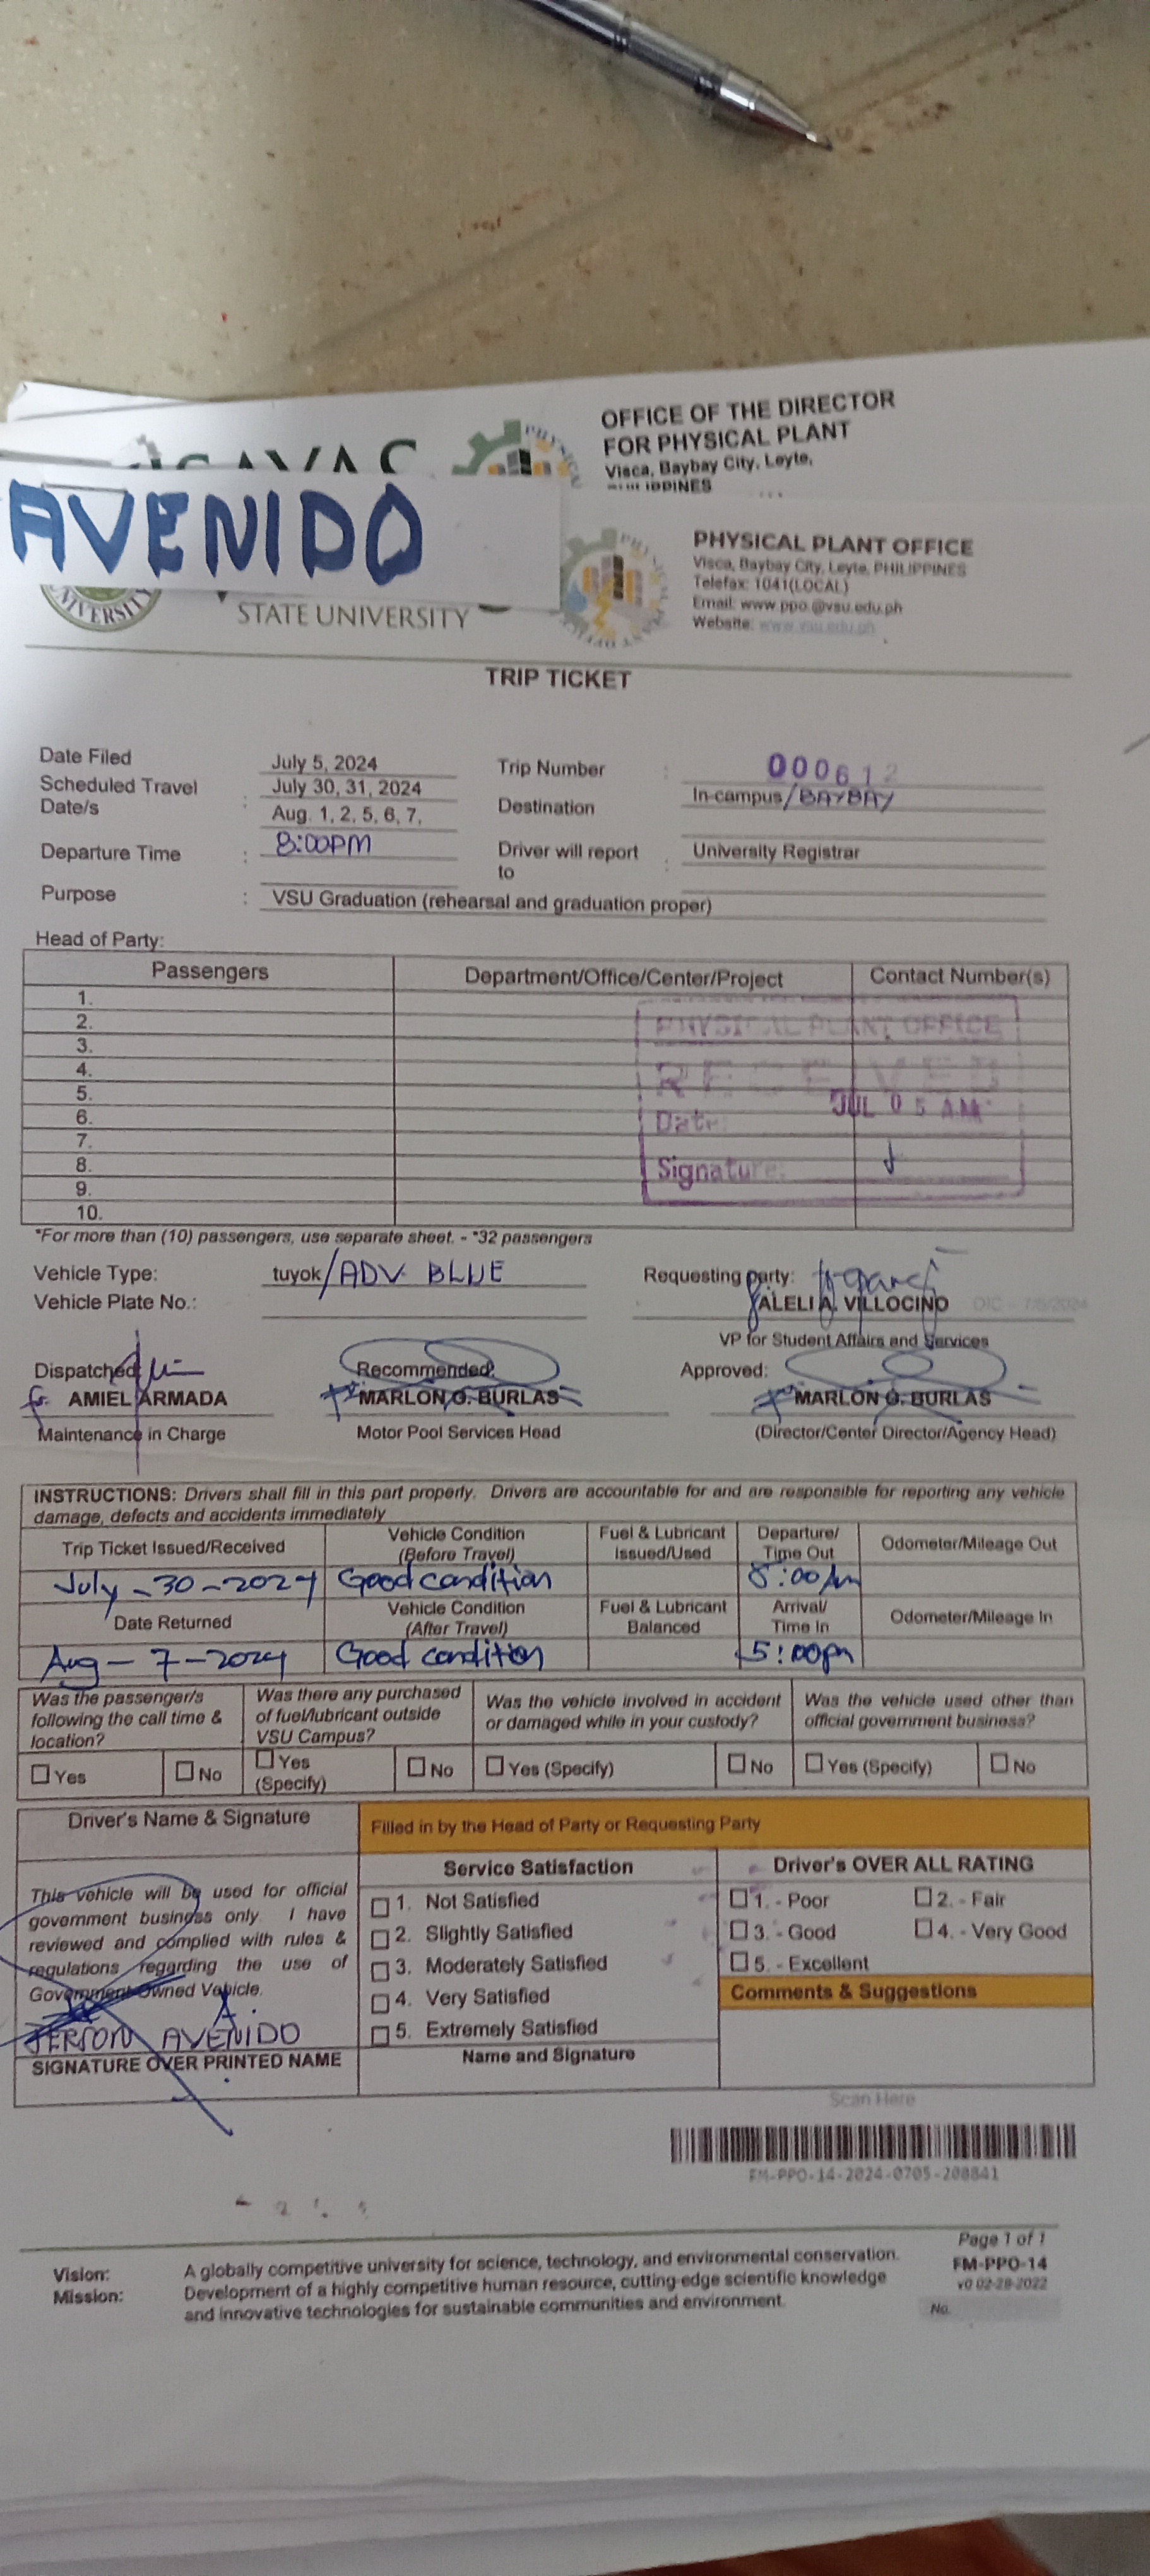 OFFICE OF THE DIRECTOR
FOR PHYSICAL PLANT
Visca, Baybay City, Leyte,
AVENIDO
PHYSICAL PLANT OFFICE
Visca, Baybay City, Leyte, PHILIPPINES
Telefax: 1041(LOCAL)
Email: www.ppo.@vsu.edu.ph
Website: www.vsu.edu.ph
STATE UNIVERSITY
TRIP TICKET
Date Filed July 5, 2024 Trip Number : 000612
Scheduled Travel Date/s : July 30, 31, 2024 Aug. 1, 2, 5, 6, 7, Destination In-campus/BAYBAY
Departure Time : 8:00PM Driver will report to : University Registrar
Purpose : VSU Graduation (rehearsal and graduation proper)
Head of Party:
Passengers Department/Office/Center/Project Contact Number(s)
1.
2.
3.
4.
5.
6.
7.
8.
9.
10.
PHYSICAL PLANT OFFICE
RECEIVED
Date: JUL 05 AM
Signature:
*For more than (10) passengers, use separate sheet. - *32 passengers
Vehicle Type: tuyok/ADV. BLUE Requesting party:
Vehicle Plate No.: ALELI A. VILLOCINO OIC - 7/5/2024
VP for Student Affairs and Services
Dispatched: Recommended: Approved:
AMIEL ARMADA MARLON G. BURLAS MARLON G. BURLAS
Maintenance in Charge Motor Pool Services Head (Director/Center Director/Agency Head)
INSTRUCTIONS: Drivers shall fill in this part properly. Drivers are accountable for and are responsible for reporting any vehicle
damage, defects and accidents immediately
Trip Ticket Issued/Received Vehicle Condition (Before Travel) Fuel & Lubricant Issued/Used Departure/ Time Out Odometer/Mileage Out
July-30-2024 Good condition 8:00Am
Date Returned Vehicle Condition (After Travel) Fuel & Lubricant Balanced Arrival/ Time In Odometer/Mileage In
Aug-7-2024 Good condition 5:00pm
Was the passenger/s following the call time & location? Was there any purchased of fuel/lubricant outside VSU Campus? Was the vehicle involved in accident or damaged while in your custody? Was the vehicle used other than official government business?
Yes No Yes (Specify) No Yes (Specify) No Yes (Specify) No
Driver's Name & Signature
Filled in by the Head of Party or Requesting Party
This vehicle will be used for official
government business only. I have
reviewed and complied with rules &
regulations regarding the use of
Government Owned Vehicle.
JERSON A. AVENIDO
SIGNATURE OVER PRINTED NAME
Service Satisfaction
1. Not Satisfied
2. Slightly Satisfied
3. Moderately Satisfied
4. Very Satisfied
5. Extremely Satisfied
Name and Signature
Driver's OVER ALL RATING
1. - Poor 2. - Fair
3. - Good 4. - Very Good
5. - Excellent
Comments & Suggestions
Scan Here
FM-PPO-14-2024-0705-208841
Page 1 of 1
FM-PPO-14
v0 02-28-2022
No.
Vision: A globally competitive university for science, technology, and environmental conservation.
Mission: Development of a highly competitive human resource, cutting-edge scientific knowledge
and innovative technologies for sustainable communities and environment.